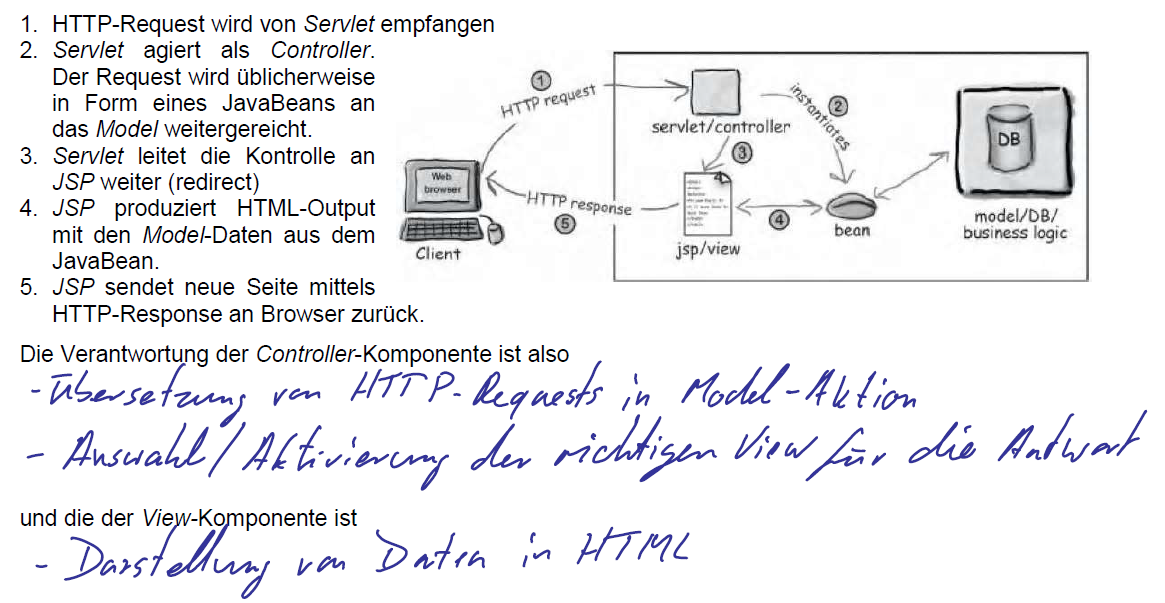 1. HTTP-Request wird von Servlet empfangen
2. Servlet agiert als Controller.
Der Request wird üblicherweise
in Form eines JavaBeans an
das Model weitergereicht.
3. Servlet leitet die Kontrolle an
JSP weiter (redirect)
4. JSP produziert HTML-Output
mit den Model-Daten aus dem
JavaBean.
5. JSP sendet neue Seite mittels
HTTP-Response an Browser zurück.
1
HTTP request
servlet/controller
2
instantiates
3
DB
Web
browser
HTTP response
5
4
Client
jsp/view
bean
model/DB/
business logic
Die Verantwortung der Controller-Komponente ist also
- Übersetzung von HTTP-Requests in Model-Aktion
- Auswahl/Aktivierung der richtigen View für die Antwort
und die der View-Komponente ist
- Darstellung von Daten in HTML